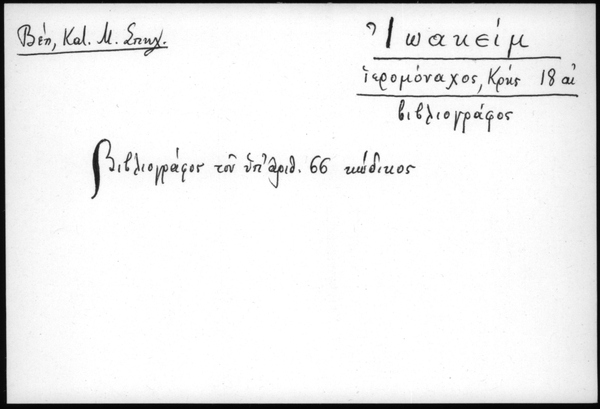 Βέη, Κατ. Μ. Σπηλ.
Ἰωακείμ
ἱερομόναχος, Κρής 18 αἰ
βιβλιογράφος
Βιβλιογράφος τοῦ ὑπ' ἀριθ. 66 κώδικος